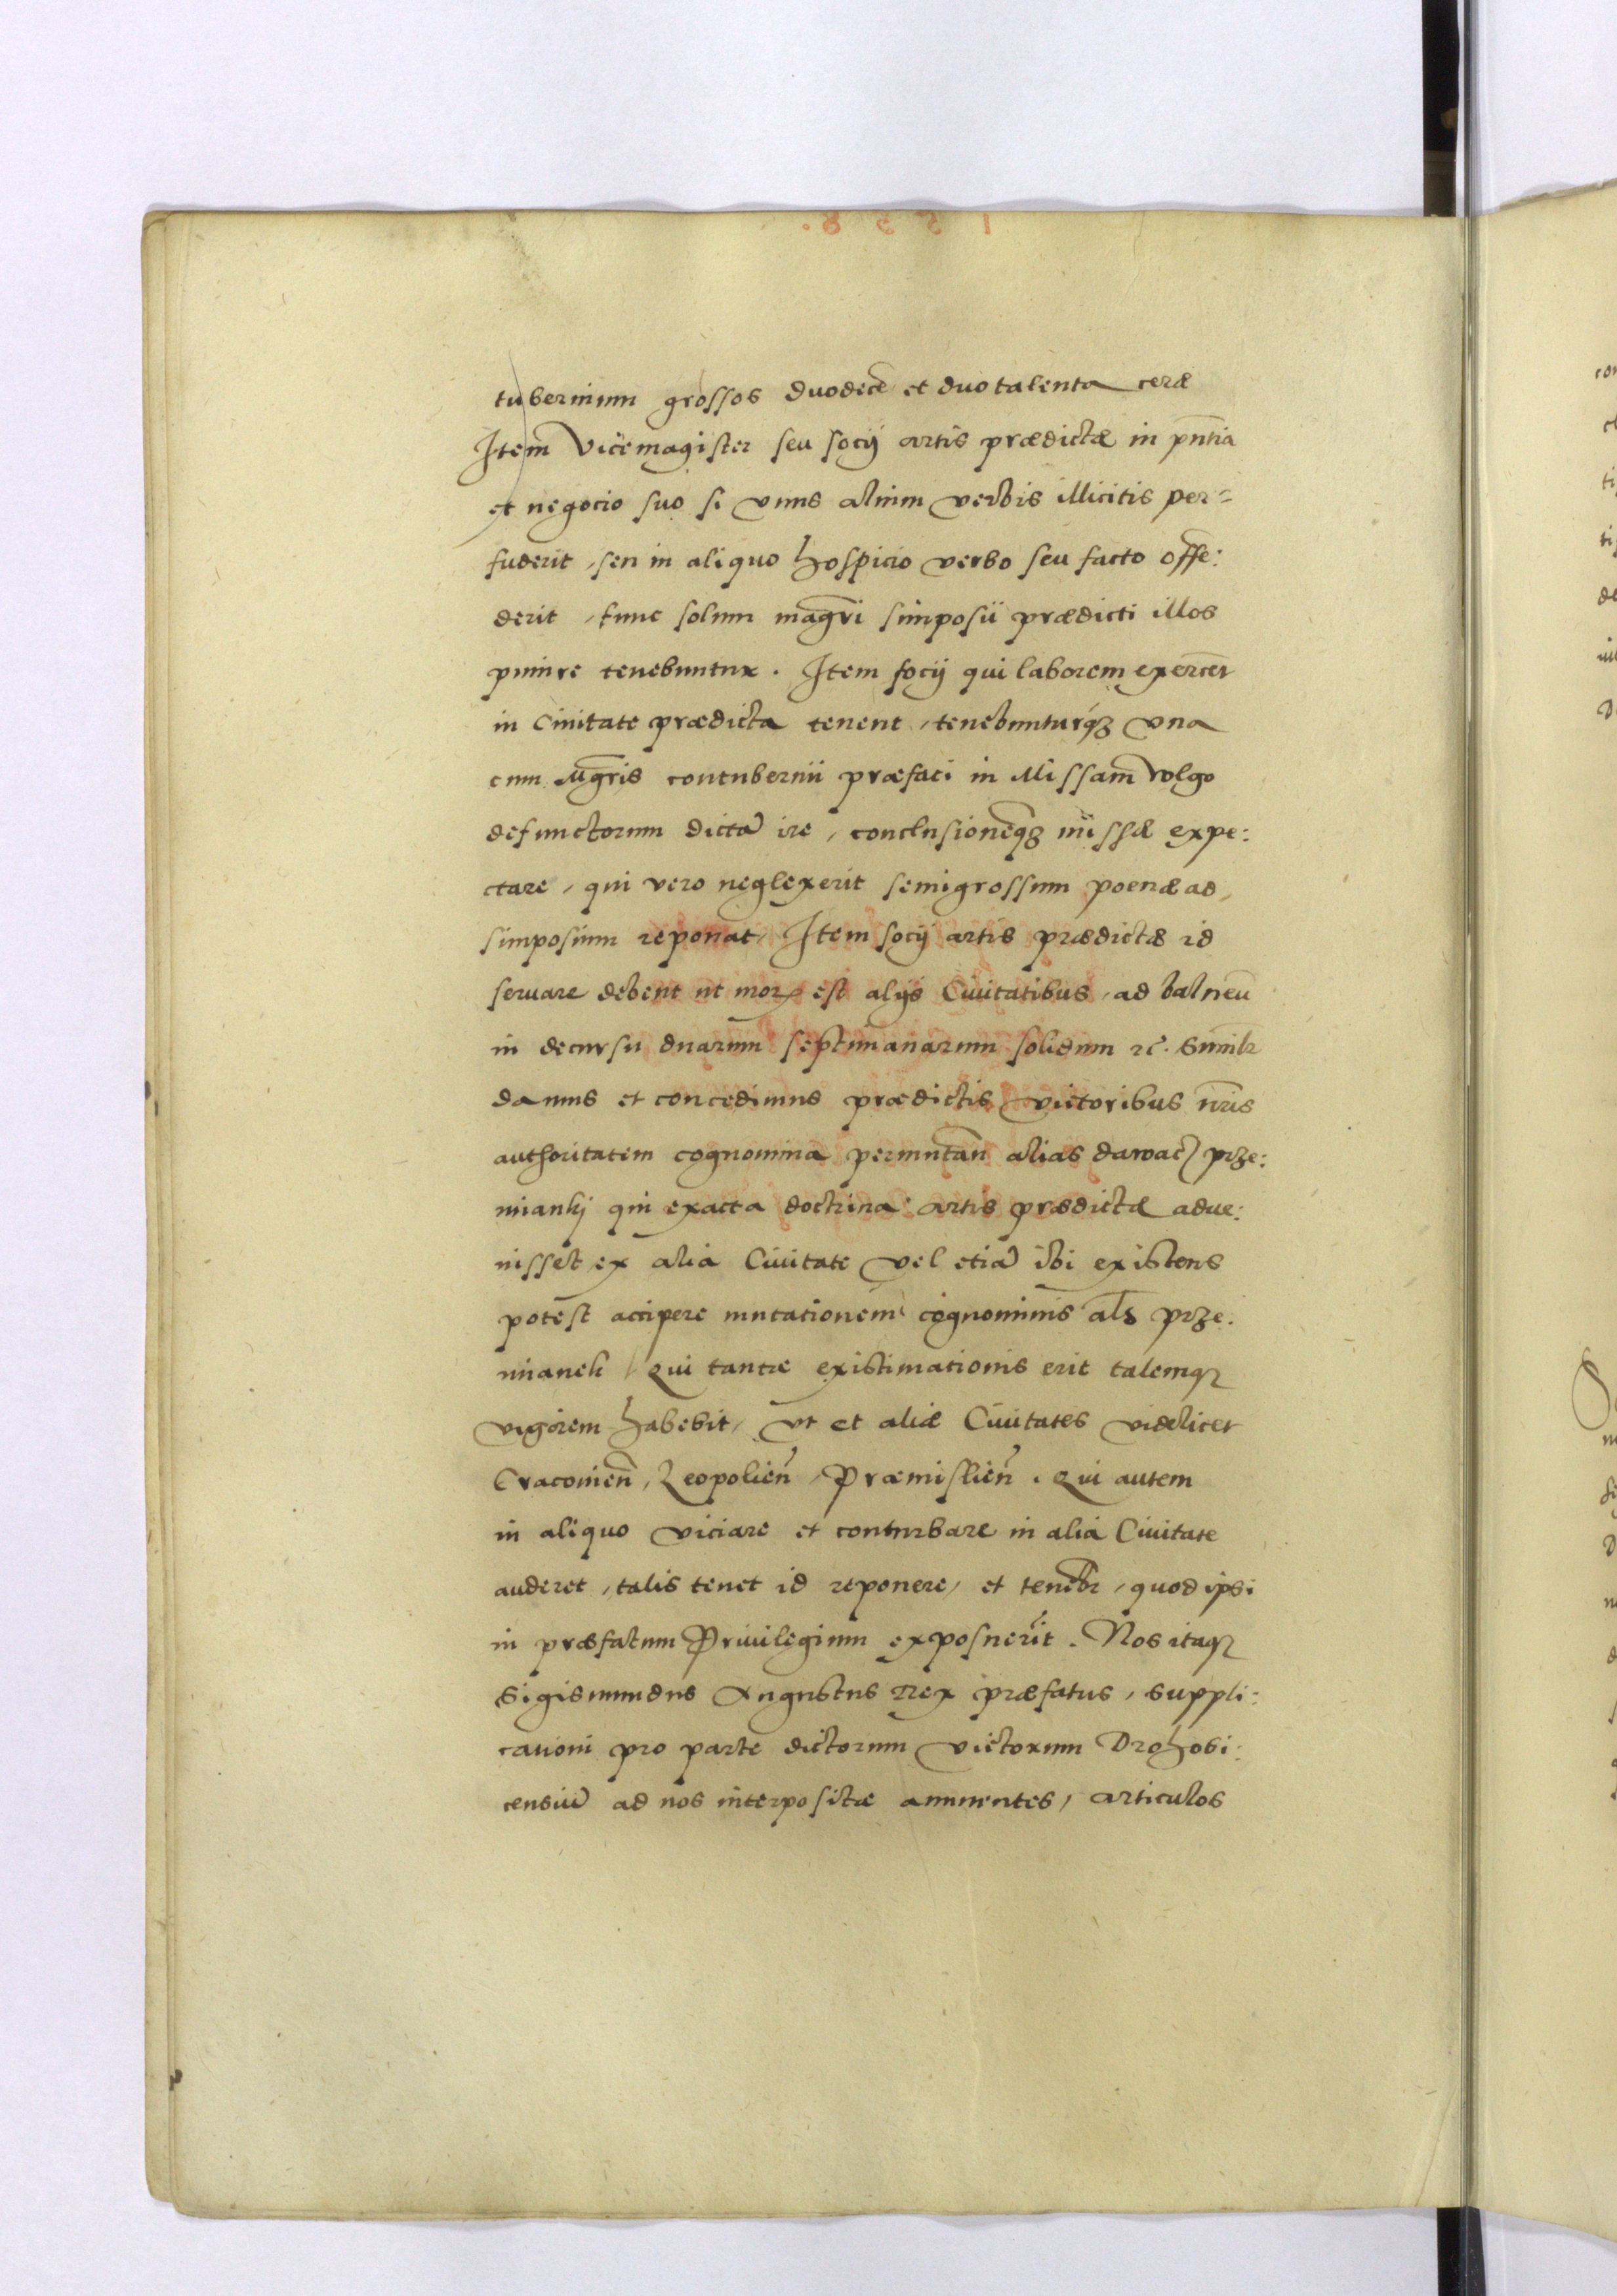 tubernium grossos duodecē et duo talenta ceræ
Item Vicemagister seu socij artis prædictæ in pn̄tia
et negocio suo si vnus alium verbis illicitis per=
fuderit, seu in aliquo hospicio verbo seu facto offē:
derit, tunc solum mag̃ri simposii prædicti illos
punire tenebuntur. Item socij qui laborem exercēt
in Ciuitate prædicta tenent, tenebunturq́ꝫ vna
cum Mg̃ris contubernii præfati in Missam volgo
defunctorum dictā ire, conclusionēqꝫ missæ expe:
ctare, qui vero neglexerit semigrossum poenæ ad
simposium reponat, Item socij artis prædictæ id
seruare debent ut mos est alijs Ciuitatibus, ad balneū
in decursu duarum septimanarum solidum rē. Simil̃r
damus et concedimus prædictis vietoribus nr̄is
authoritatem cognomina permutan̄ alias dawać prze:
mianki qui exacta doctrina artis prædictæ adue:
nisset ex alia Ciuitate vel etiā ibi existens
potest accipere mutationem cognominis al̄s prze:
mianek Qui tantæ existimationis erit talemqꝫ
vigorem habebit, vt et aliæ Ciuitates videlicet
Cracouien̄, Leopolien̄, Præmislien̄. Qui autem
in aliquo viciare et conturbare in alia Ciuitate
auderet, talis tenet id reponere, et teneb̄r, quod ipsi
in præfatum Priuilegium exposuerīt. Nos itaqꝫ
Sigismundus Augustus Rex præfatus, suppli:
cationi pro parte dictorum vietorum Drohobi:
censiū ad nos interpositæ annuentes, articulos